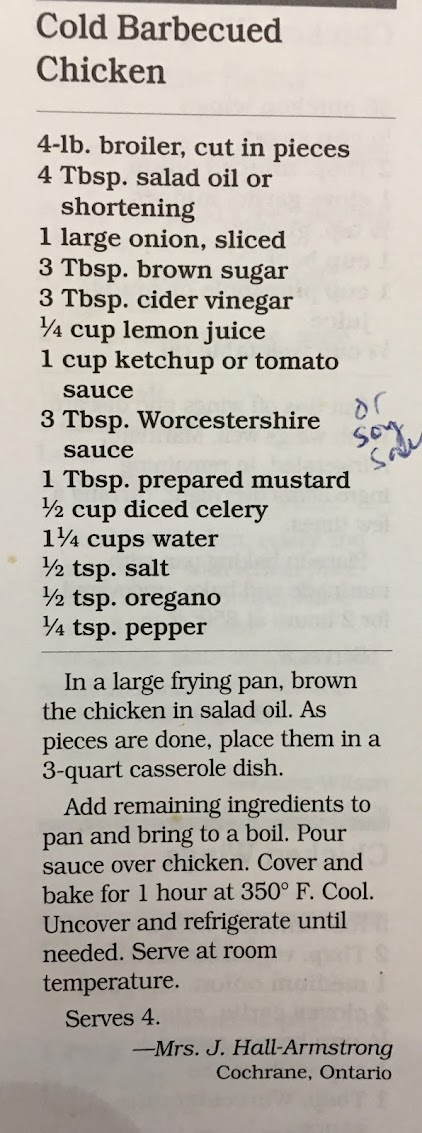 Cold Barbecued
Chicken
4-lb. broiler, cut in pieces
4 Tbsp. salad oil or
shortening
1 large onion, sliced
3 Tbsp. brown sugar
3 Tbsp. cider vinegar
¼ cup lemon juice
1 cup ketchup or tomato
sauce
3 Tbsp. Worcestershire
sauce
or
soy
sauce
1 Tbsp. prepared mustard
½ cup diced celery
1¼ cups water
½ tsp. salt
½ tsp. oregano
¼ tsp. pepper
In a large frying pan, brown
the chicken in salad oil. As
pieces are done, place them in a
3-quart casserole dish.
Add remaining ingredients to
pan and bring to a boil. Pour
sauce over chicken. Cover and
bake for 1 hour at 350° F. Cool.
Uncover and refrigerate until
needed. Serve at room
temperature.
Serves 4.
—Mrs. J. Hall-Armstrong
Cochrane, Ontario